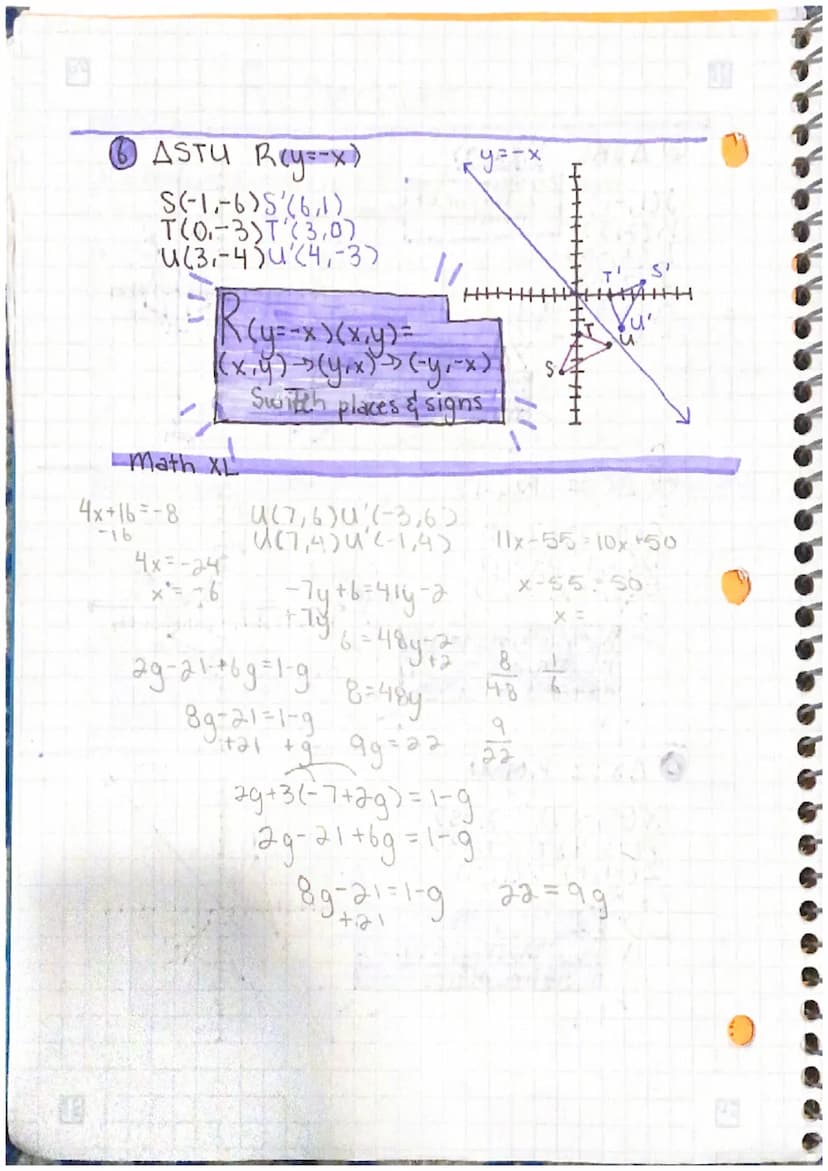 6 ΔSTU R(y=-x)
S(-1,-6) S'(6,1)
T(0,-3) T'(3,0)
U(3,-4) U'(4,-3)
y=-x
T' S'
U'
T
U
S
R(y=-x)(x,y)=
(x,y)→(y,x)→(-y,-x)
Switch places & signs
Math XL
4x+16=-8
-16
4x=-24
x=-6
U(7,6) U'(-3,6)
U(7,4) U'(-1,4)
-7y+6=41y-2
+7y
6=48y-2
+2
8=48y
11x-55=10x+50
x-55=50
x=
8/48 1/6
2g-21+6g=1-g
8g-21=1-g
+21 +g
9g=22
9/22
2g+3(-7+2g)=1-g
2g-21+6g=1-g
8g-21=1-g
+21
22=9g